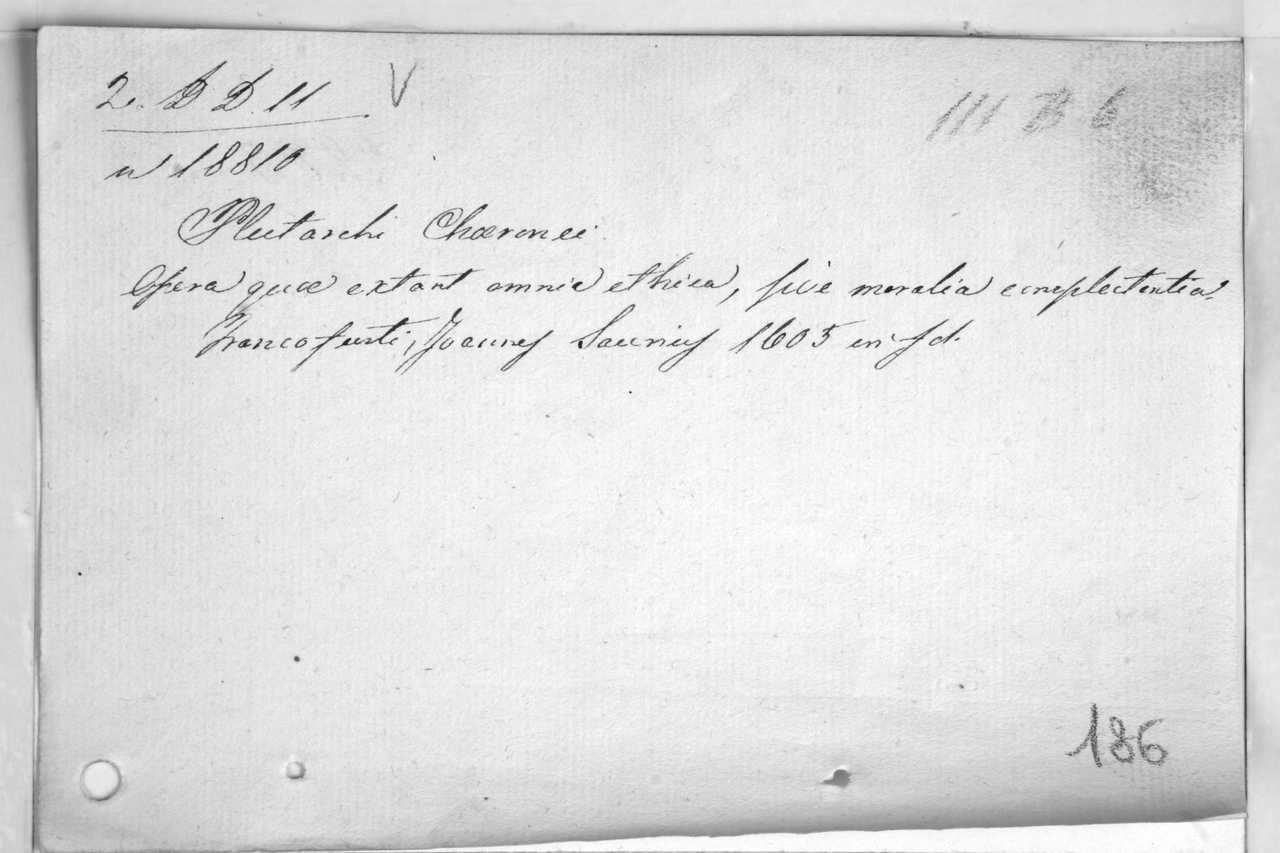 2. D D. 11 V
III B 6
n 18810
Plutarchi Chæronei
Opera quæ extant omnia ethica, sive moralia complectentia.
Francofurti, Joannes Saurius 1605 in fol.
186